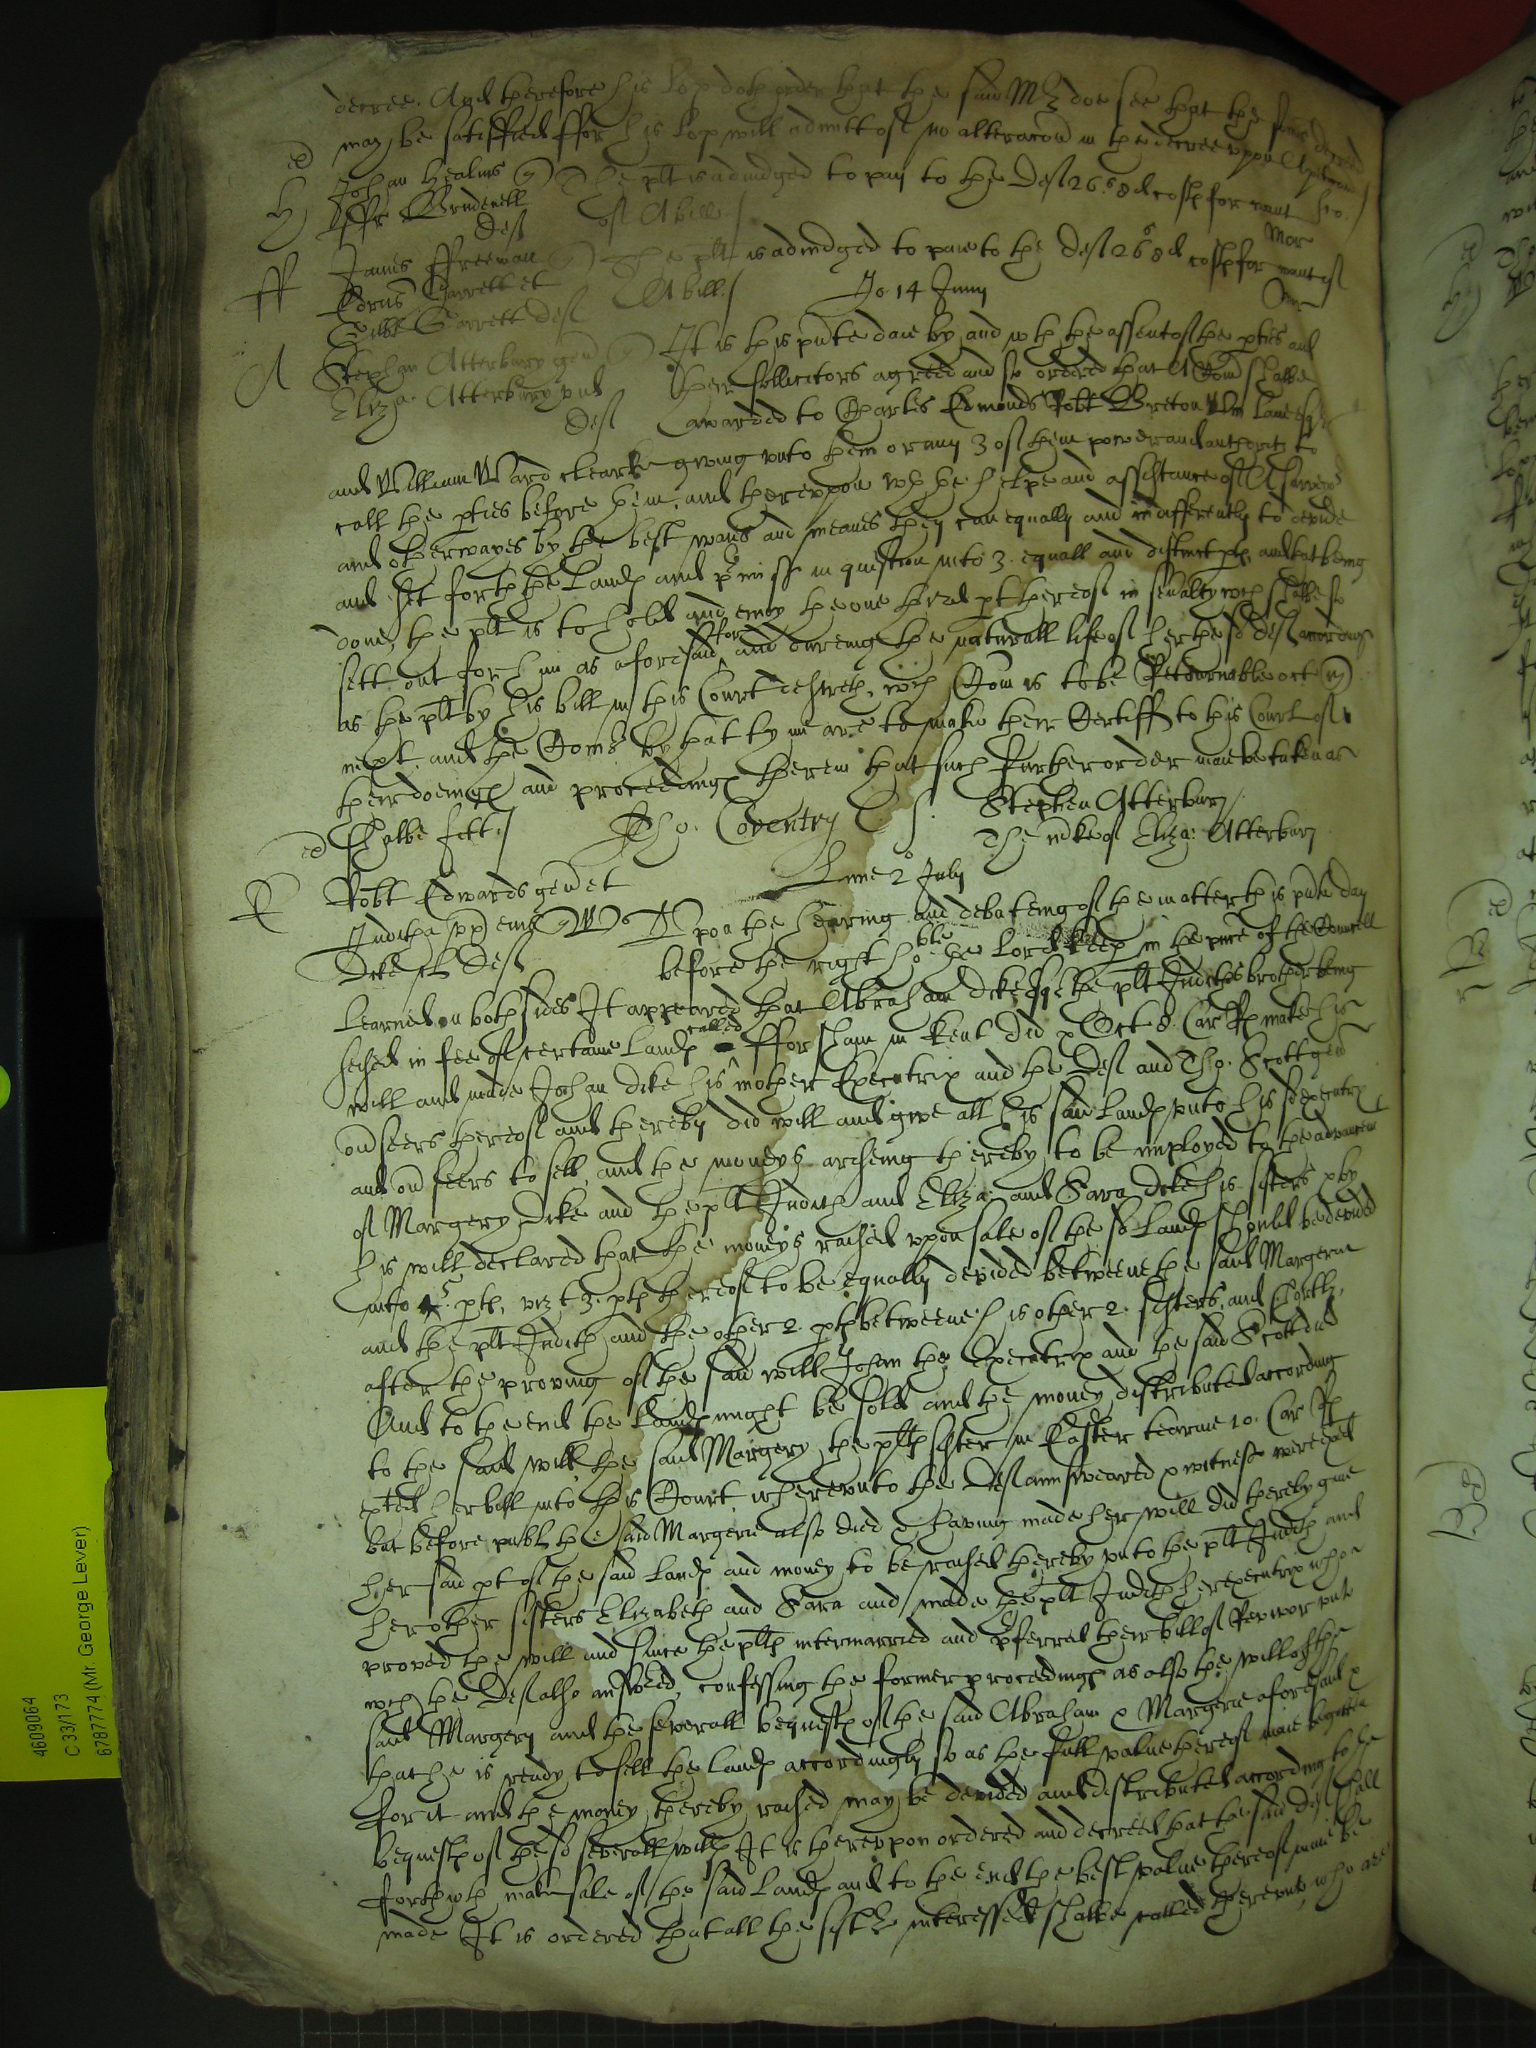 decree. And therefore his Lop doth order that the said Mr doe see that the
may be satisffied ffor his Lop will admitt of no alteracon in the decree upon
H Johan Healins The plt is adiudged to pay to the Def 26s 8d costs for want
ffr Brudenell
Def of A bill
ff James ffreeman The plt is adiudged to paie to the Def 26s 8d costs for want of
Edrus Garrett et A bill
Gilbt Garrett Def
Jo 14 Junij
A Stephan Atterbury gen It is this pnte daie by and wth the assent of the pties and
Eliza: Atterbury vid their sollicitors agreed and so ordered that A Com shalbe
Def awarded to Charles Edmonds Robt Breton Wm Lane esqr
and William Ward clearke giving unto them or any 3 of them power and authority to
call the pties before them, and thereupon wth the helpe and assistance of A
and otherwayes by the best waies and meanes they can equally and indifferently to devide
and set forth the Lands and pmiss in question into 3 equall and distinct pts, and that being
done, the plt is to hold and enioy the one third pt thereof in sevalty wch shalbe so
sett out for him as aforesaid, for and dureing the naturall life of her the sd Def according
as the plt by his bill in this Court desireth, wch Com is to be Retournable oct
next, and the Comrs by that tyme are to make their Certiff to this Court of
their doeings and proceedings therein that such further order maie be taken as
shalbe fitt
Tho. Coventry CS.
Stephen Atterbury
The mke of Eliza: Atterbury
Lune 2o July
E Robt Edwards gen et
Juditha ux eius Upon the hearing and debateing of the matter this pnte day
Dike Def before the right hoble the Lord Keep in the pnce of the Councell
Learned on both sides It appeared that Abraham Dike esqr the plt Judiths brother being
seised in fee of certaine Lands called ffor sham in Kent did Oct 8. Car Rs make his
will and made Johan Dike his mother Executrix and the Def and Tho. Scott gen
ovseers thereof and thereby did will and give all his said Lands unto his sd executrix
and ovseers to sell, and the moneys ariseing thereby to be imployed to the advancmt
of Margery Dike and the plt Judith and Eliza: and Sara Dike his sisters & by
his will declared that the moneys raised upon sale of the sd Lands should be devided
into 5. pts, vizt 3. pts thereof to be equally devided betweene the said Margerie
and the plt Judith and the other 2. pts betweene his other 2. sisters, and shortly
after the proving of the said will Johan the executrix and the said Scott died
And to the end the Lands might be sold and the money distributed according
to the said will, the said Margery the plts sister in Easter tearme 10. Car Rs
exted her bill into this Court, whereunto the Def aunsweared & witness were exed
but before publ the said Margerie also died & having made her will did thereby give
her said pt of the said Lands and money to be raised thereby unto the plt Judith and
her other sisters Elizabeth and Sara and made the plt Judith her executrix who
proved the will and since the plts intermarried and pferred their bill of Revivor unto
wch the Def also answered, confessing the former proceedings as also the will of the
said Margery and the severall bequests of the said Abraham & Margerie aforesaid &
that he is ready to sell the lands accordingly so as the full value thereof maie be gotten
for it and the money thereby raised may be devided and distributed according to the
bequests of the sd severall wills It is thereupon ordered and decreed that the said Def shall
forthwth make sale of the said Lands and to the end the best value thereof maie be
made It is ordered that all the sistrs interessed shalbe called thereunto, who are
4609064
C 33/173
6787774 (Mr. George Lever)